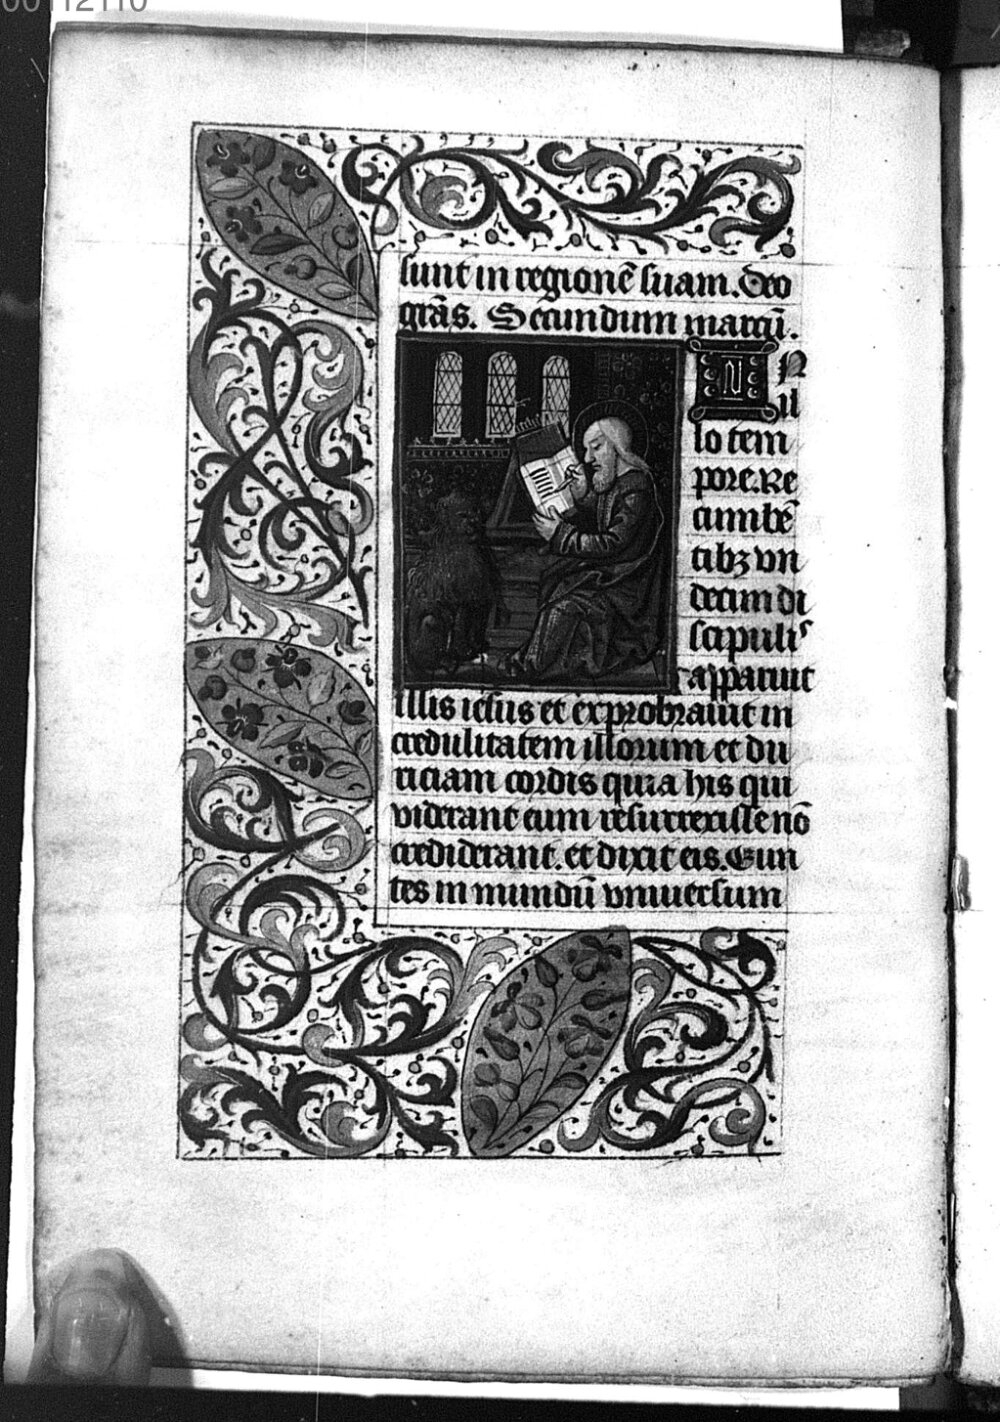 00112110
sunt in regionē suam. Deo
grās. Secundum marcū.
IN
il
lo tem
pore. Re
cumbē
tibꝫ vn
decim di
scipulis
apparuit
illis iesus et exprobrauit in
credulitatem illorum et du
riciam cordis quia his qui
viderant eum resurrexisse nō
crediderant. et dixit eis. Eun
tes in mundū vniuersum